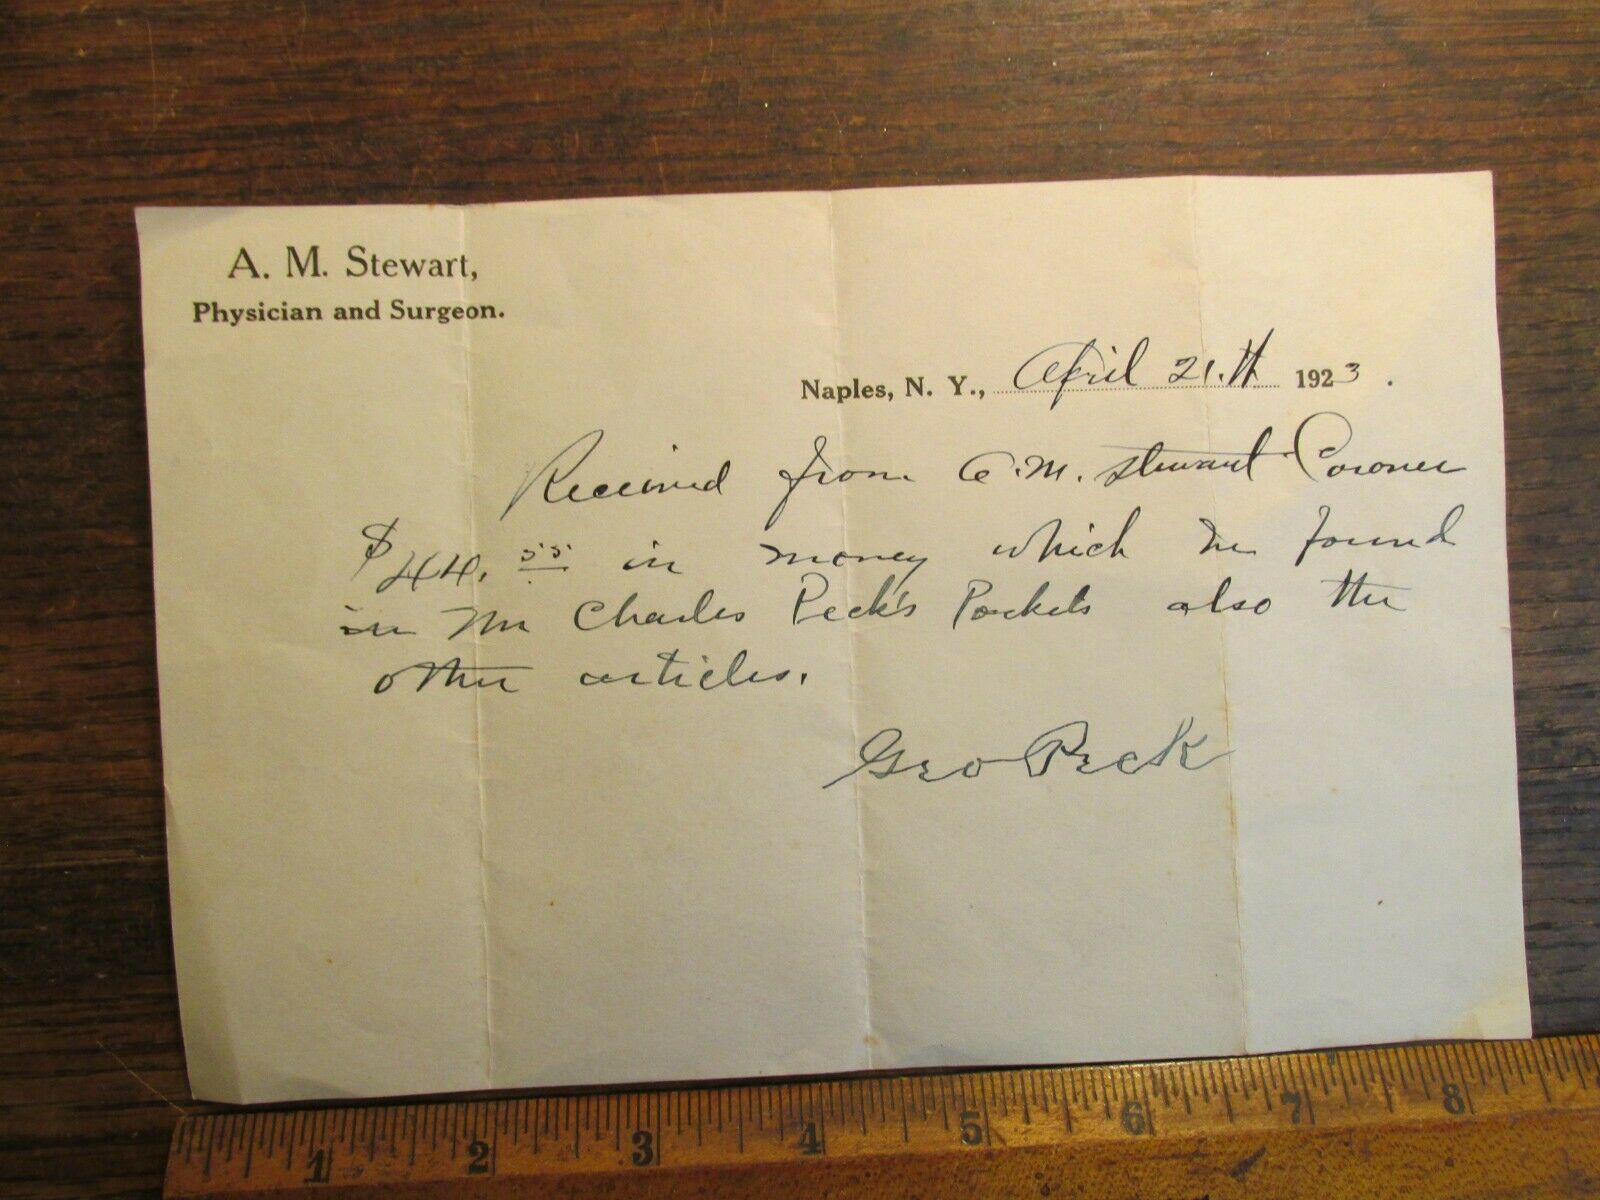 A. M. Stewart,
Physician and Surgeon.
Naples, N. Y., April 21.st 1923.
Received from A. M. Stewart Coroner
$44.55 in money which he found
in Mr Charles Peck's Pockets also the
other articles.
Geo Peck
1 2 3 4 5 6 7 8